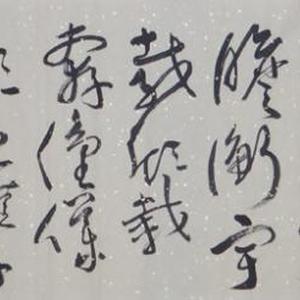 瞻衡宇
載欣載
奔僮僕